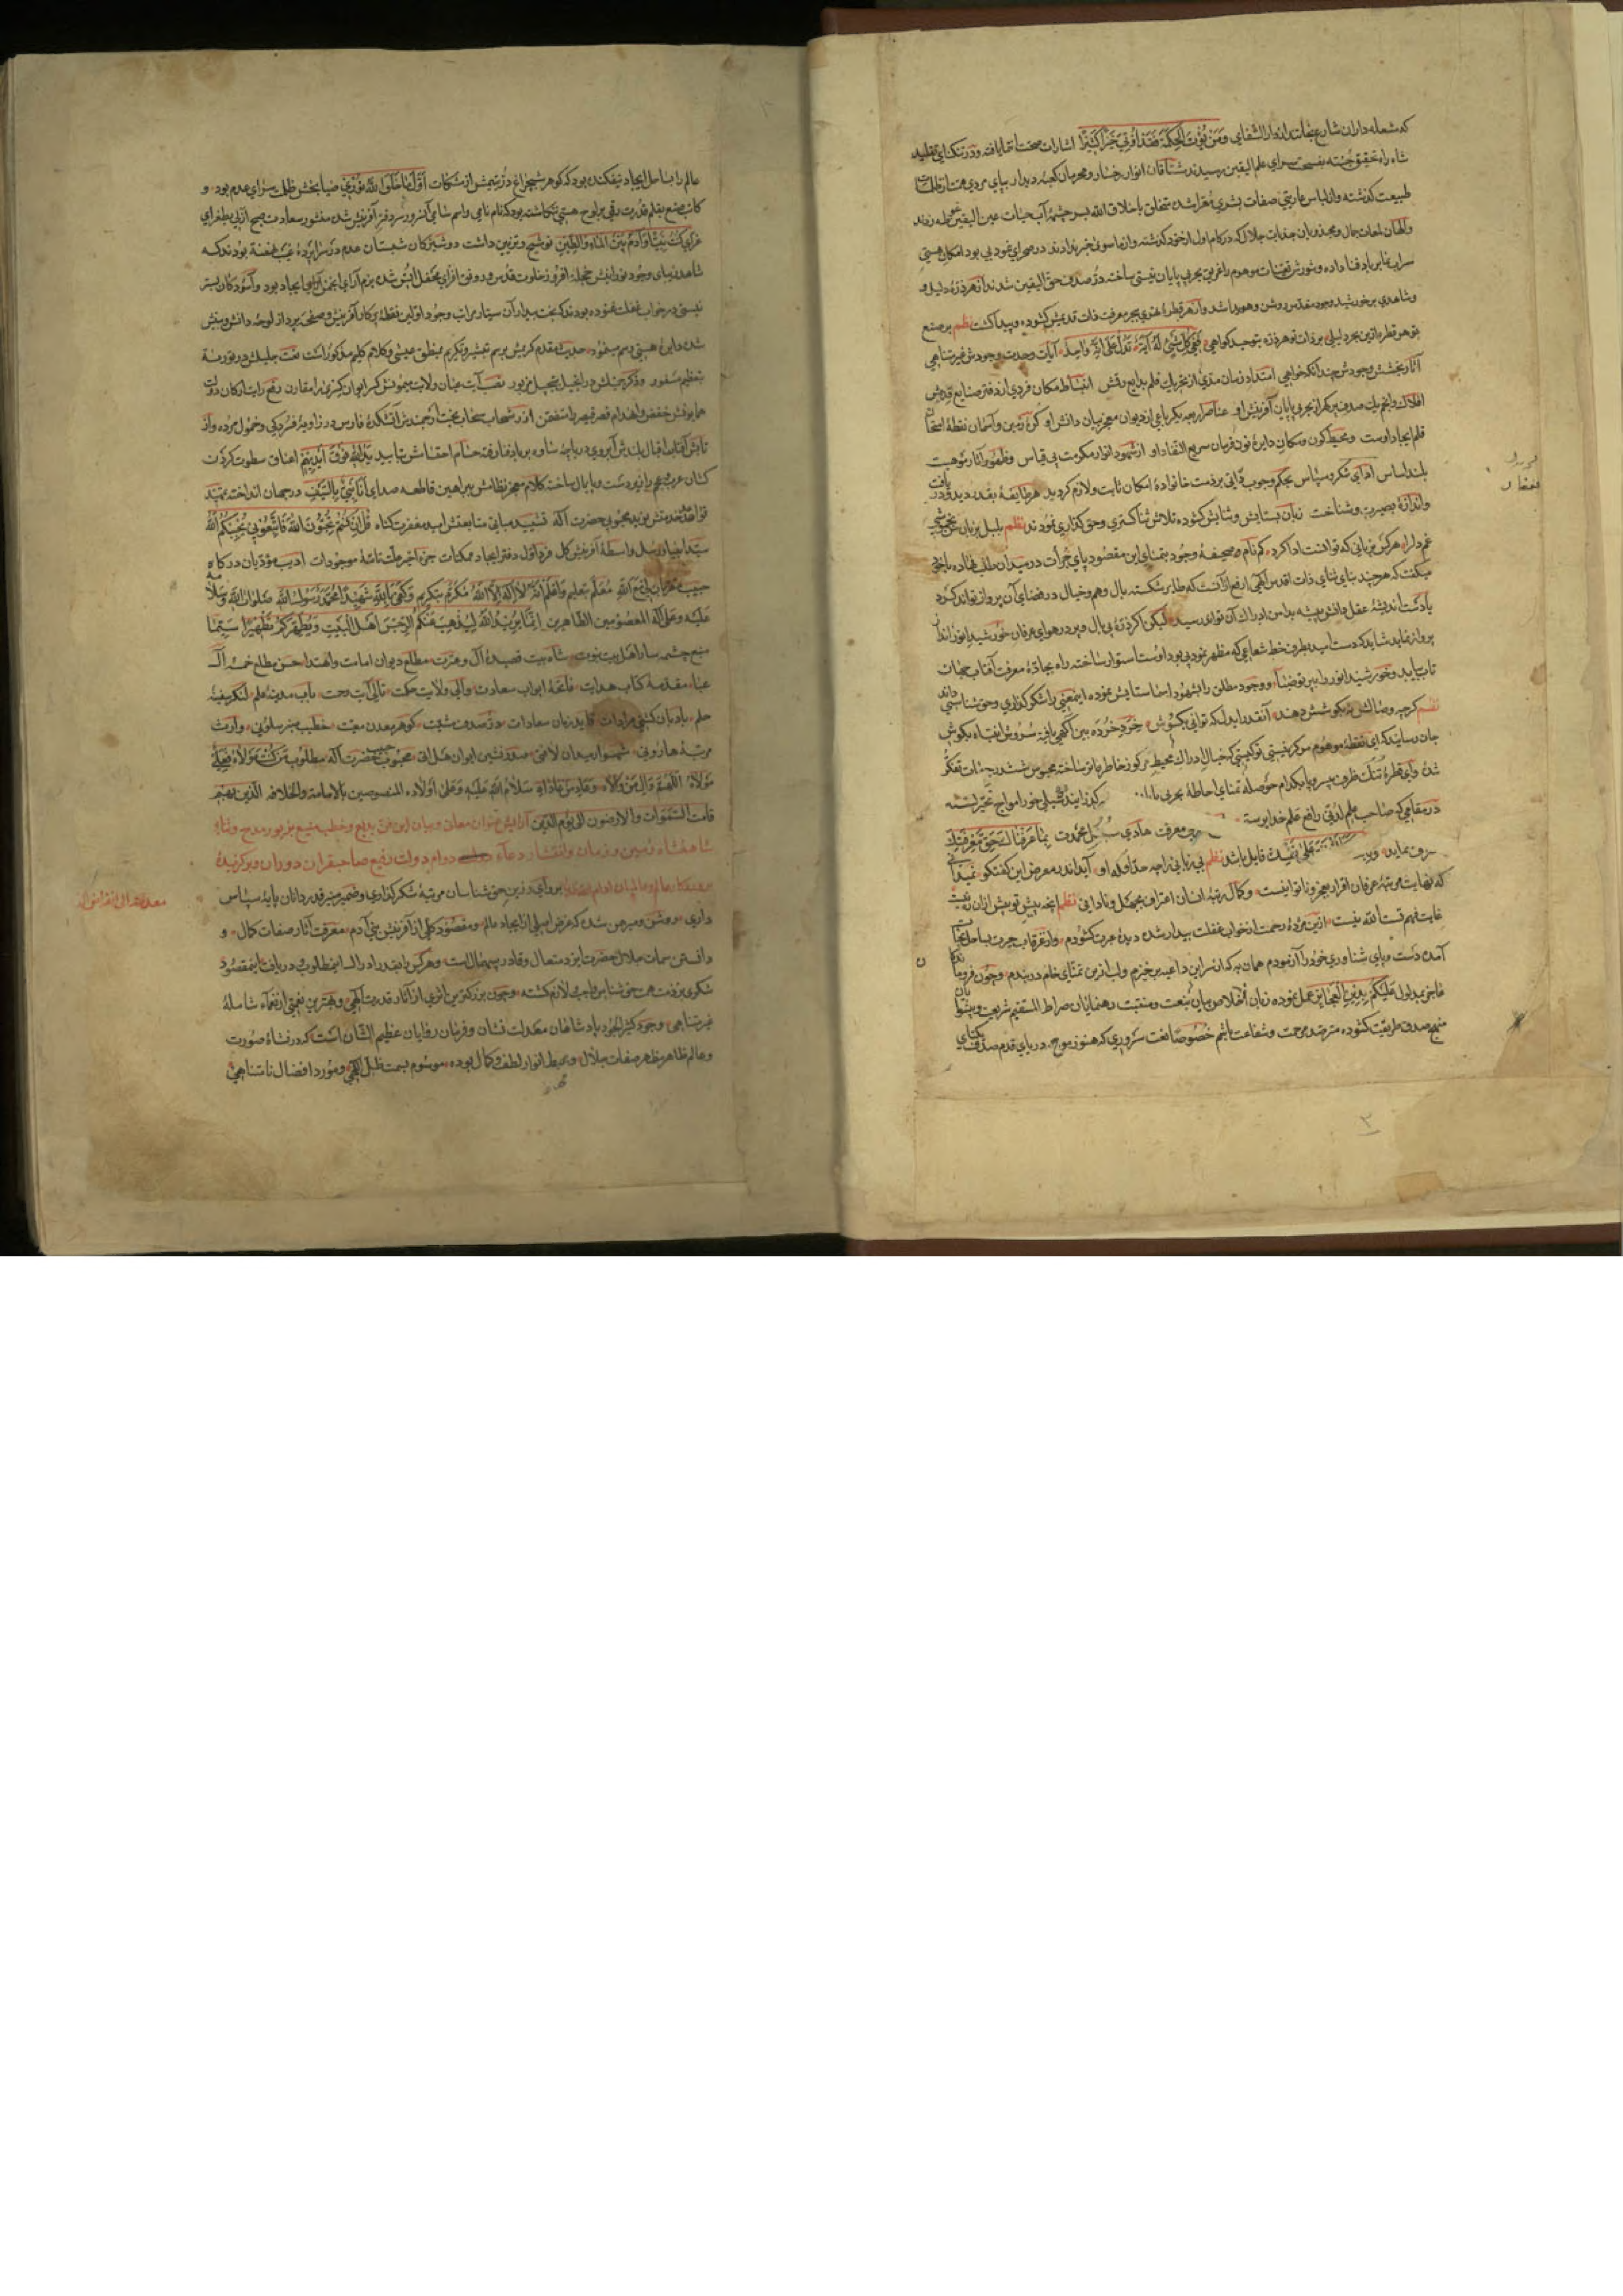 که شعله داران شارع نجات از انوار الشفای ومن یؤت الحکمة فقد اوتی خیرا کثیرا اشارات صحت انتما یافته ودر تنکنای تقلید
شاه راه تحقیق جسته بفسحت سرای علم الیقین رسیدند مشتاقان انوار رخسار ومحرمان کعبه دیدار بپای مردی همت از ظلمات
طبیعت کذشته واز لباس عاریتی صفات بشری معرا شده متخلق باخلاق الله بسر چشمهٔ آب حیات عین الیقین
والهان لمعات جمال ومجذوبان جذبات جلال که در کام اول از خود کذشته واز ماسوی خبر ندادند در صحرای نمود بی بود امکان هستی
سراب نما بر باد فنا داده وشورش تعینات موهوم را غریق بحر بی پایان نیستی ساخته در صدف حق الیقین شدند از هر ذره دلیل و
وشاهدی بر خورشید وجود مقدس روشن وهویدا شد واز هر قطره بحر معرفت ذات قدیمش کشوده وپیدا کشت نظم بر صنع
تو هر قطره ازین بحر دلیلی بر ذات تو هر ذره بتوحید کواهی ففی کل شئ له آیة تدل علی انه واحد آیات وحدت وجودش غیر متناهی
آثار بخشش وجودش چندانکه خواهی امتداد زمان مدی از تحریک قلم بدایع رقمش انبساط مکان فردی از دفتر صنایع قدمش
افلاک وانجم یک صدف پر کهر از بحر بی پایان آفرینش او عناصر اربعه یکرباعی از دیوان معجز بیان دانش او کرهٔ زمین وآسمان نقطهٔ امتحان
قلم ایجاد اوست ومحیط کون ومکان دایرهٔ نون فرمان سریع النفاذ او از شهود انوار مکرمت بی قیاس وظهور آثار موهبت
بلند اساس ادای شکر وسپاس بحکم وجوب ذاتی بر ذمت خانوادهٔ امکان ثابت ولازم کردید هر طایفه بقدر دید ودریافت
واندازهٔ بصیرت وشناخت زبان بستایش ونیایش کشوده تلاش ثناکستری وحق کذاری نمودند نظم بلبل بزبان
غم دل را هر کس بزبانی که توانست ادا کرد کم نام صحیفهٔ وجود بتمنای این مقصود پای جرأت در میدان طلب نهاده با خود
میکفت که هر چند بنای ثنای ذات اقدس الهی ارفع از آنست که طایر شکسته بال وهم وخیال در فضای آن پرواز تواند کرد
یا دست اندیشهٔ عقل دانش پیشه بدامن ادراک آن تواند رسید لیکن اکر ذرهٔ بی بال وپر در هوای عرفان خورشید انور اندا
پرواز نماید شاید که دست امید بطرف خط شعاعی که مظهر نمود بی بود اوست استوار ساخته راه بجادهٔ معرفت آفتاب جهان
تاب یابد وخورشید انور را ببرتو ضیا ووجود مطلق را بشهود اسما ستایش نموده اینمعنی را شکر کذاری وحق شناسی داند
نظم کر چه وصالش نه بکوشش دهند آنقدر ایدل که توانی بکوش خرد خرده بین آکهی یافته سروش انتباه بکوش
جان رساینده ای نقطهٔ موهوم مرکز نیستی تو کیستی که خیال ادراک محیط مرکوز خاطر فاتر ساخته محبوس ششدر جهات تفکر
شدهٔ وای قطرهٔ تنک ظرف بی سر وپا بکدام حوصله تمنای احاطهٔ بحر بی
در مقامی که صاحب علم لدنی رافع علم خدا پرستی معرفت هادی سبل محمدت بما عرفناک حق معرفتک
علی نفسک قایل باشد نظم بی زبانی راچه حد آوله او آید اندر معرض این کفتکو نمیدانی
که نهایت مرتبهٔ عرفان اقرار بعجز وناتوانیست وکمال رتبهٔ انسان اعتراف بجهل ونادانی نظم انچه پیش تو پیش ازان ره نیست
غایت فهم تست الله نیست ازین مژدهٔ رحمت از خواب غفلت بیدار شده دیدهٔ عبرت کشودم واز غرقاب حیرت بساحل نجات
آمده دست وپای شناوری خود را آزمودم همان به که از سر این داعیه بر خیزم ولب ازین تمنای خام در بندم وچون فروماندکان
عاجز بمدلول علیکم بدین العجایز عمل نموده زبان اخلاص بیان بنعت ومنقبت رهنمایان صراط المستقیم شریعت وپیشوایان
منهج صدق طریقت کشوده مترصد مرحمت وشفاعت باشم خصوصا نعت سروری که هنوز موج دریای قدم صدف یکتای
عالم را بساحل ایجاد نیفکنده بود که کوهر شبچراغ در یتیمش از مشکات اول ما خلق الله نوری ضیا بخش ظلمت سرای عدم بود و
کاتب صنع بقلم قدرت رقمی بر لوح هستی ننکاشته بود که نام نامی واسم سامی آنسرور سر دفتر آفرینش شده منشور سعادت صبح ازل بطغرای
غرای کنت نبیا وآدم بین الماء والطین توشیح وتزیین داشت دوشیزکان شبستان عدم در سراپردهٔ غیب نهفته بودند که
شاهد زیبای وجود نور افزایش حجله افروز خلوت قدس ورونق افزای محفل انس شده بزم آرای انجمن ایجاد بود وآسودکان بستر
نیستی در خواب غفلت غنوده بودند که بخت بیدار آن سیار مراتب وجود اولین نقطهٔ پرکار آفرینش وصفحه پرداز لوحهٔ دانش وبینش
شده وایرهٔ هستی رسم مینمود حدیث مقدم کریمش مریم تبشیر وتکریم بمنطق عیسی وکلام کلیم مذکور است نعت جلیلش در توریة
بتعظیم مسفور وذکر جمیلش در انجیل بتبجیل مزبور نصب آیت عنان ولایت میمونش کسر ایوان کسری را مقارن رفع رایات ارکان دولت
همایونش خفض وانهدام قصر قیصر را متضمن از رشحات سحاب بخت ارجمندش آتشکدهٔ فارس در زاویهٔ فسردکی وخمول مرده واز
تابش آفتاب اقبال بلندش آبروی دریاچهٔ ساوه بر باد فنا رفته حسام انتقامش بتایید ید الله فوق ایدیهم اعناق سطوت کردن
کشان عرب وعجم را زیر دست وپایمال ساخته کلام معجز نظامش ببراهین قاطعه صدای انا نبی بالسیف در جهان انداخته تمهید
قواعد خدمتش نوید محبوبی حضرت آله تشیید مبانی متابعتش امید مغفرت کناه قل ان کنتم تحبون الله فاتبعونی یحببکم الله
سید انبیا ورسل واسطهٔ آفرینش کل فرد اول دفتر ایجاد ممکنات جزء اخیر علت تامهٔ موجودات ادیب مؤدبان درکاه
حبیب مع الله معلم بتعلیم فاعلم انه لا اله الا الله مکرم بتکریم وکفی بالله شهیدا محمد رسول الله صلوات الله وسلامه
علیه وعلی آله المعصومین الطاهرین انما یرید الله لیذهب عنکم الرجس اهل البیت ویطهرکم تطهیرا سیما
منبع چشمه سار اهل بیت نبوت شاه بیت قصیدهٔ آل وعترت مطلع دیوان امامت واهتدا حسن مطلع خمسه آل
عبا مقدمهٔ کتاب هدایت فاتحهٔ ابواب سعادت والی ولایت حکمت تالی آیت رحمت باب مدینهٔ علم لنکر سفینهٔ
حلم بادبان کشتی مرادات قاید زمان سعادات در صدف مشیت کوهر معدن معیت خطیب منبر سلونی وارث
مرتبهٔ هارونی شهسوار میدان لافتی مسند نشین ایوان هل اتی محبوب حبیب حضرت آله مطلوب من کنت مولاه فعلی
مولاه اللهم وال من والاه وعاد من عاداه سلام الله علیه وعلی اولاده المنصوصین بالامامة والخلافة الذین بهم
قامت السموات والارضون الی یوم الدین آرایش عنوان معانی وبیان این فن بدیع وخطبه منیع بزیور مدح وثنای
شاهنشاه زمین وزمان وانتشار دعاء دوام دولت رفیع صاحبقران دوران وبرکزیدهٔ
بر رای رزین حق شناسان مرتبهٔ شکر کذاری وضمیر منیر قدر دانان پایهٔ سپاس
داری روشن ومبرهن شده که غرض اصلی از ایجاد عالم ومقصود کلی از آفرینش بنی آدم معرفت آثار صفات کمال و
دانستن سمات جلال حضرت ایزد متعال وقادر بیهمال است وهر کس بقدر ادراک اینمطلوب دریافت اینمقصود
شکری بر ذمت همت حق شناس واجب ولازم کشته وچون بزرکترین اثری از آثار قدرت الهی وبهترین نعمتی از نعماء شامله
غیر متناهی وجود کثیر الجود پادشاهان معدلت نشان وفرمان روایان عظیم الشان است که در نشاهٔ صورت
وعالم ظاهر مظهر صفات جلال ومحیط انوار لطف وکمال بوده موسوم بسمت ظل الهی ومورد افضال نامتناهی